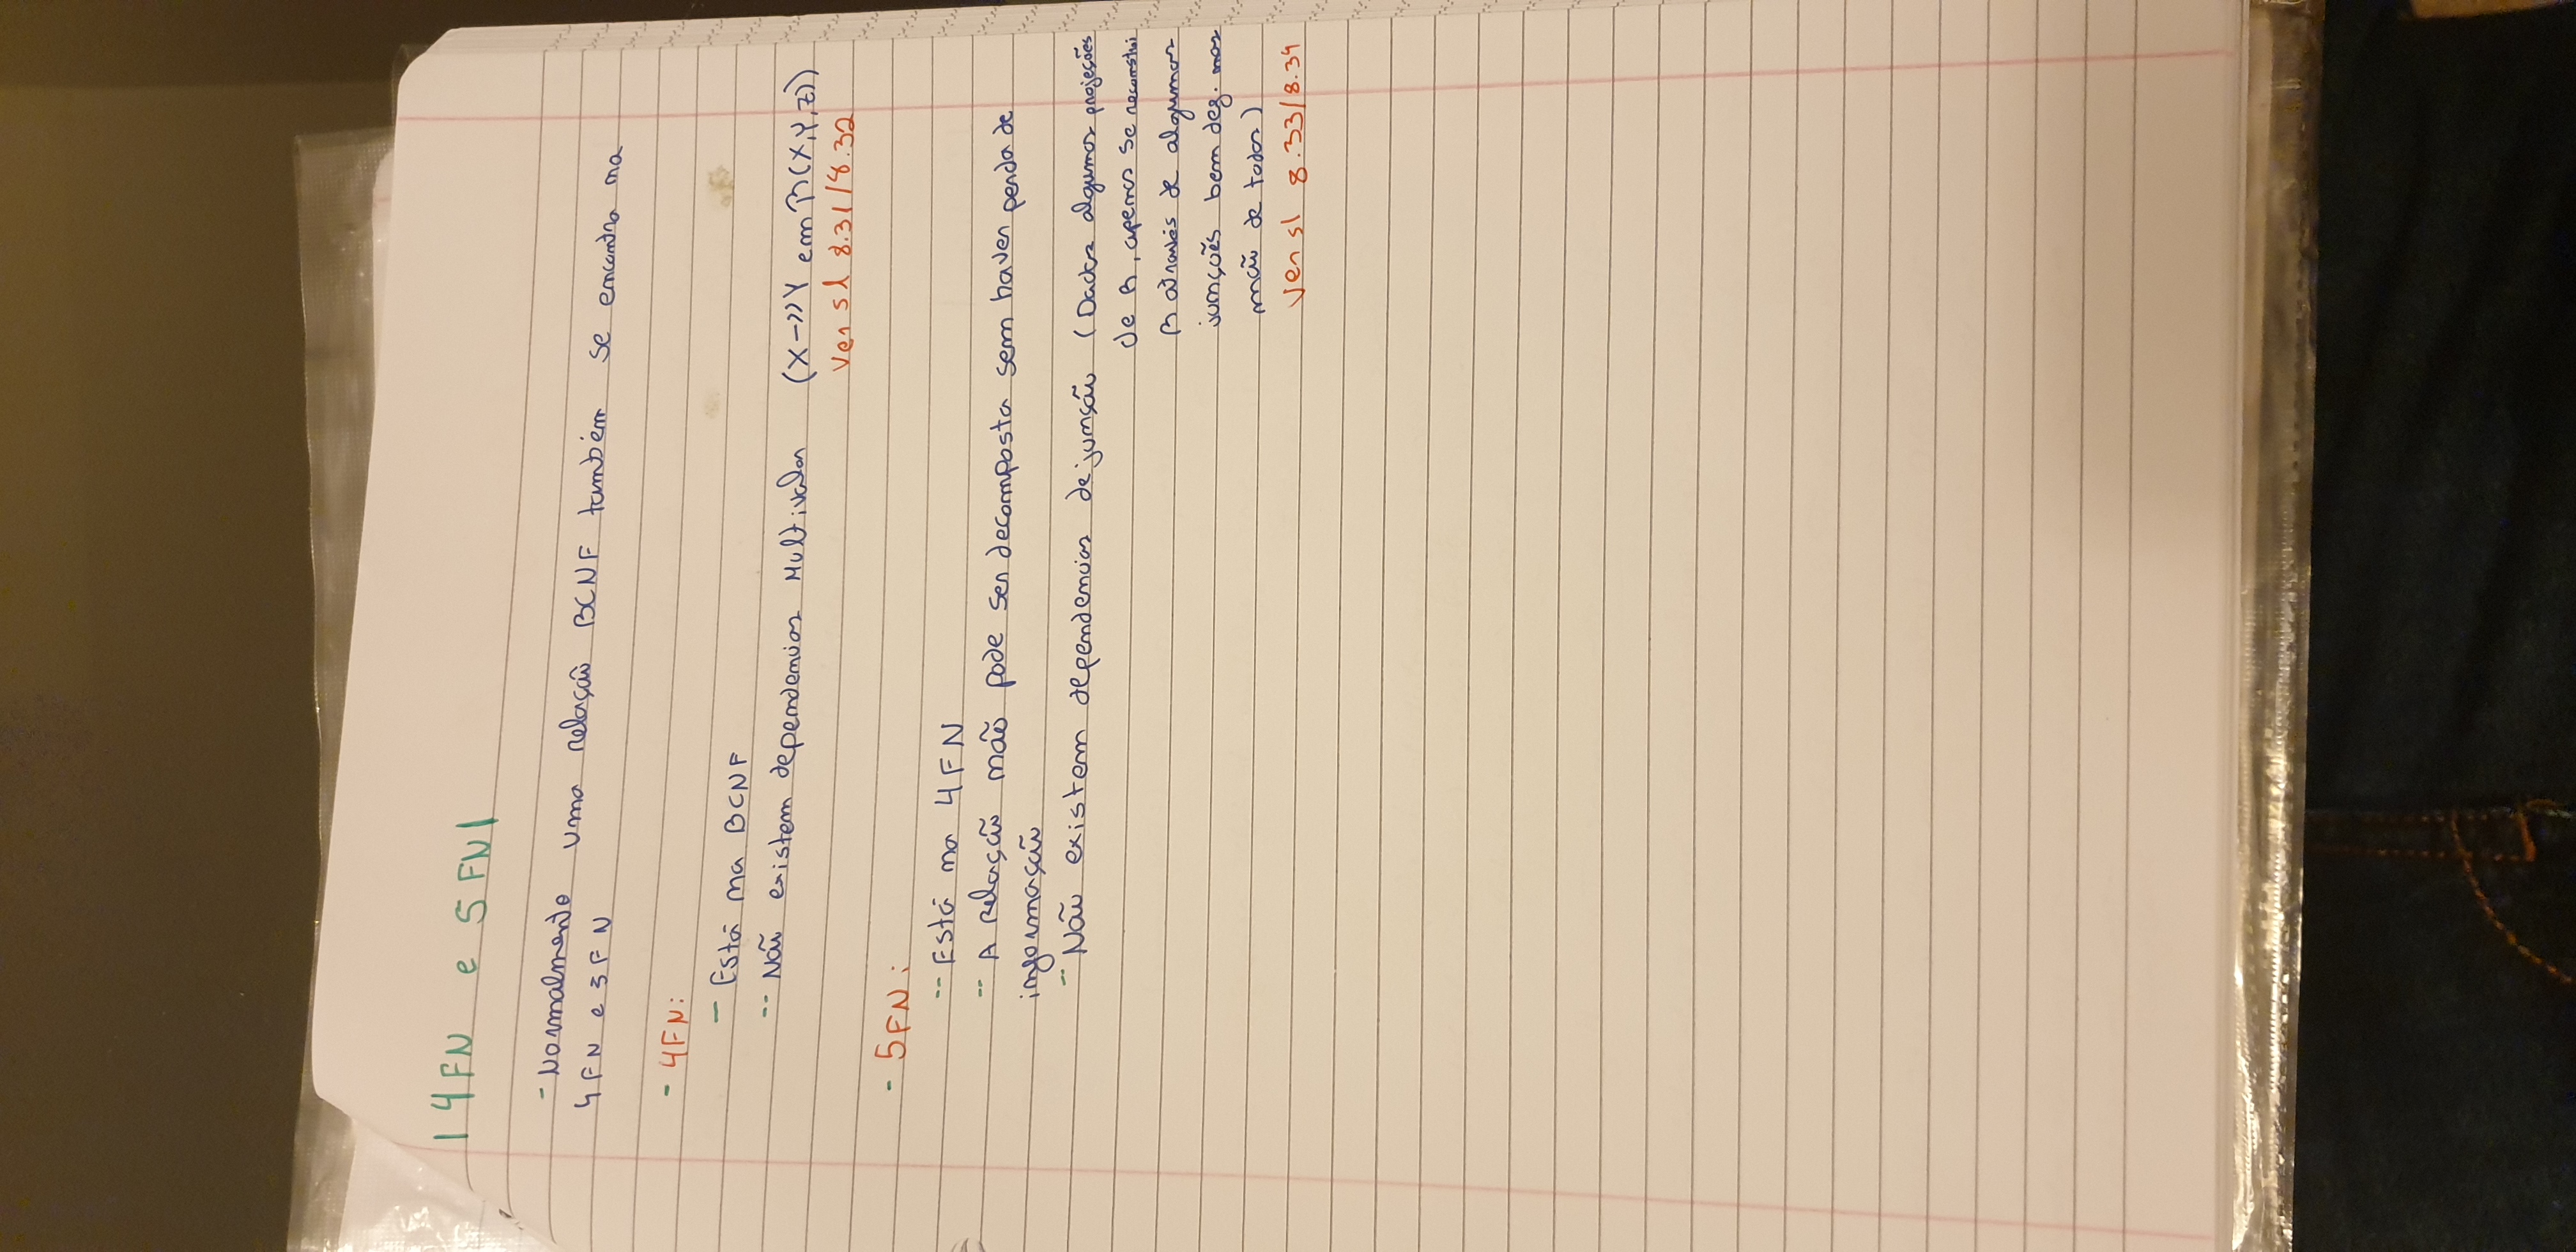 |4FN e 5FN|
- Normalmente uma relação BCNF também se encontra na
4FN e 5FN
- 4FN:
- Está na BCNF
-- Não existem dependencias Multivalor (X->>Y em R(X,Y,Z))
Ver sl 8.31/8.32
- 5FN:
-- Está na 4FN
-- A relação não pode ser decomposta sem haver perda de
informação
-- Não existem dependencias de junção (Dadas algumas projeções
de R, apenas se reconstroi
R através de algumas
junções bem def. mas
não de todas)
Ver sl 8.33/8.34